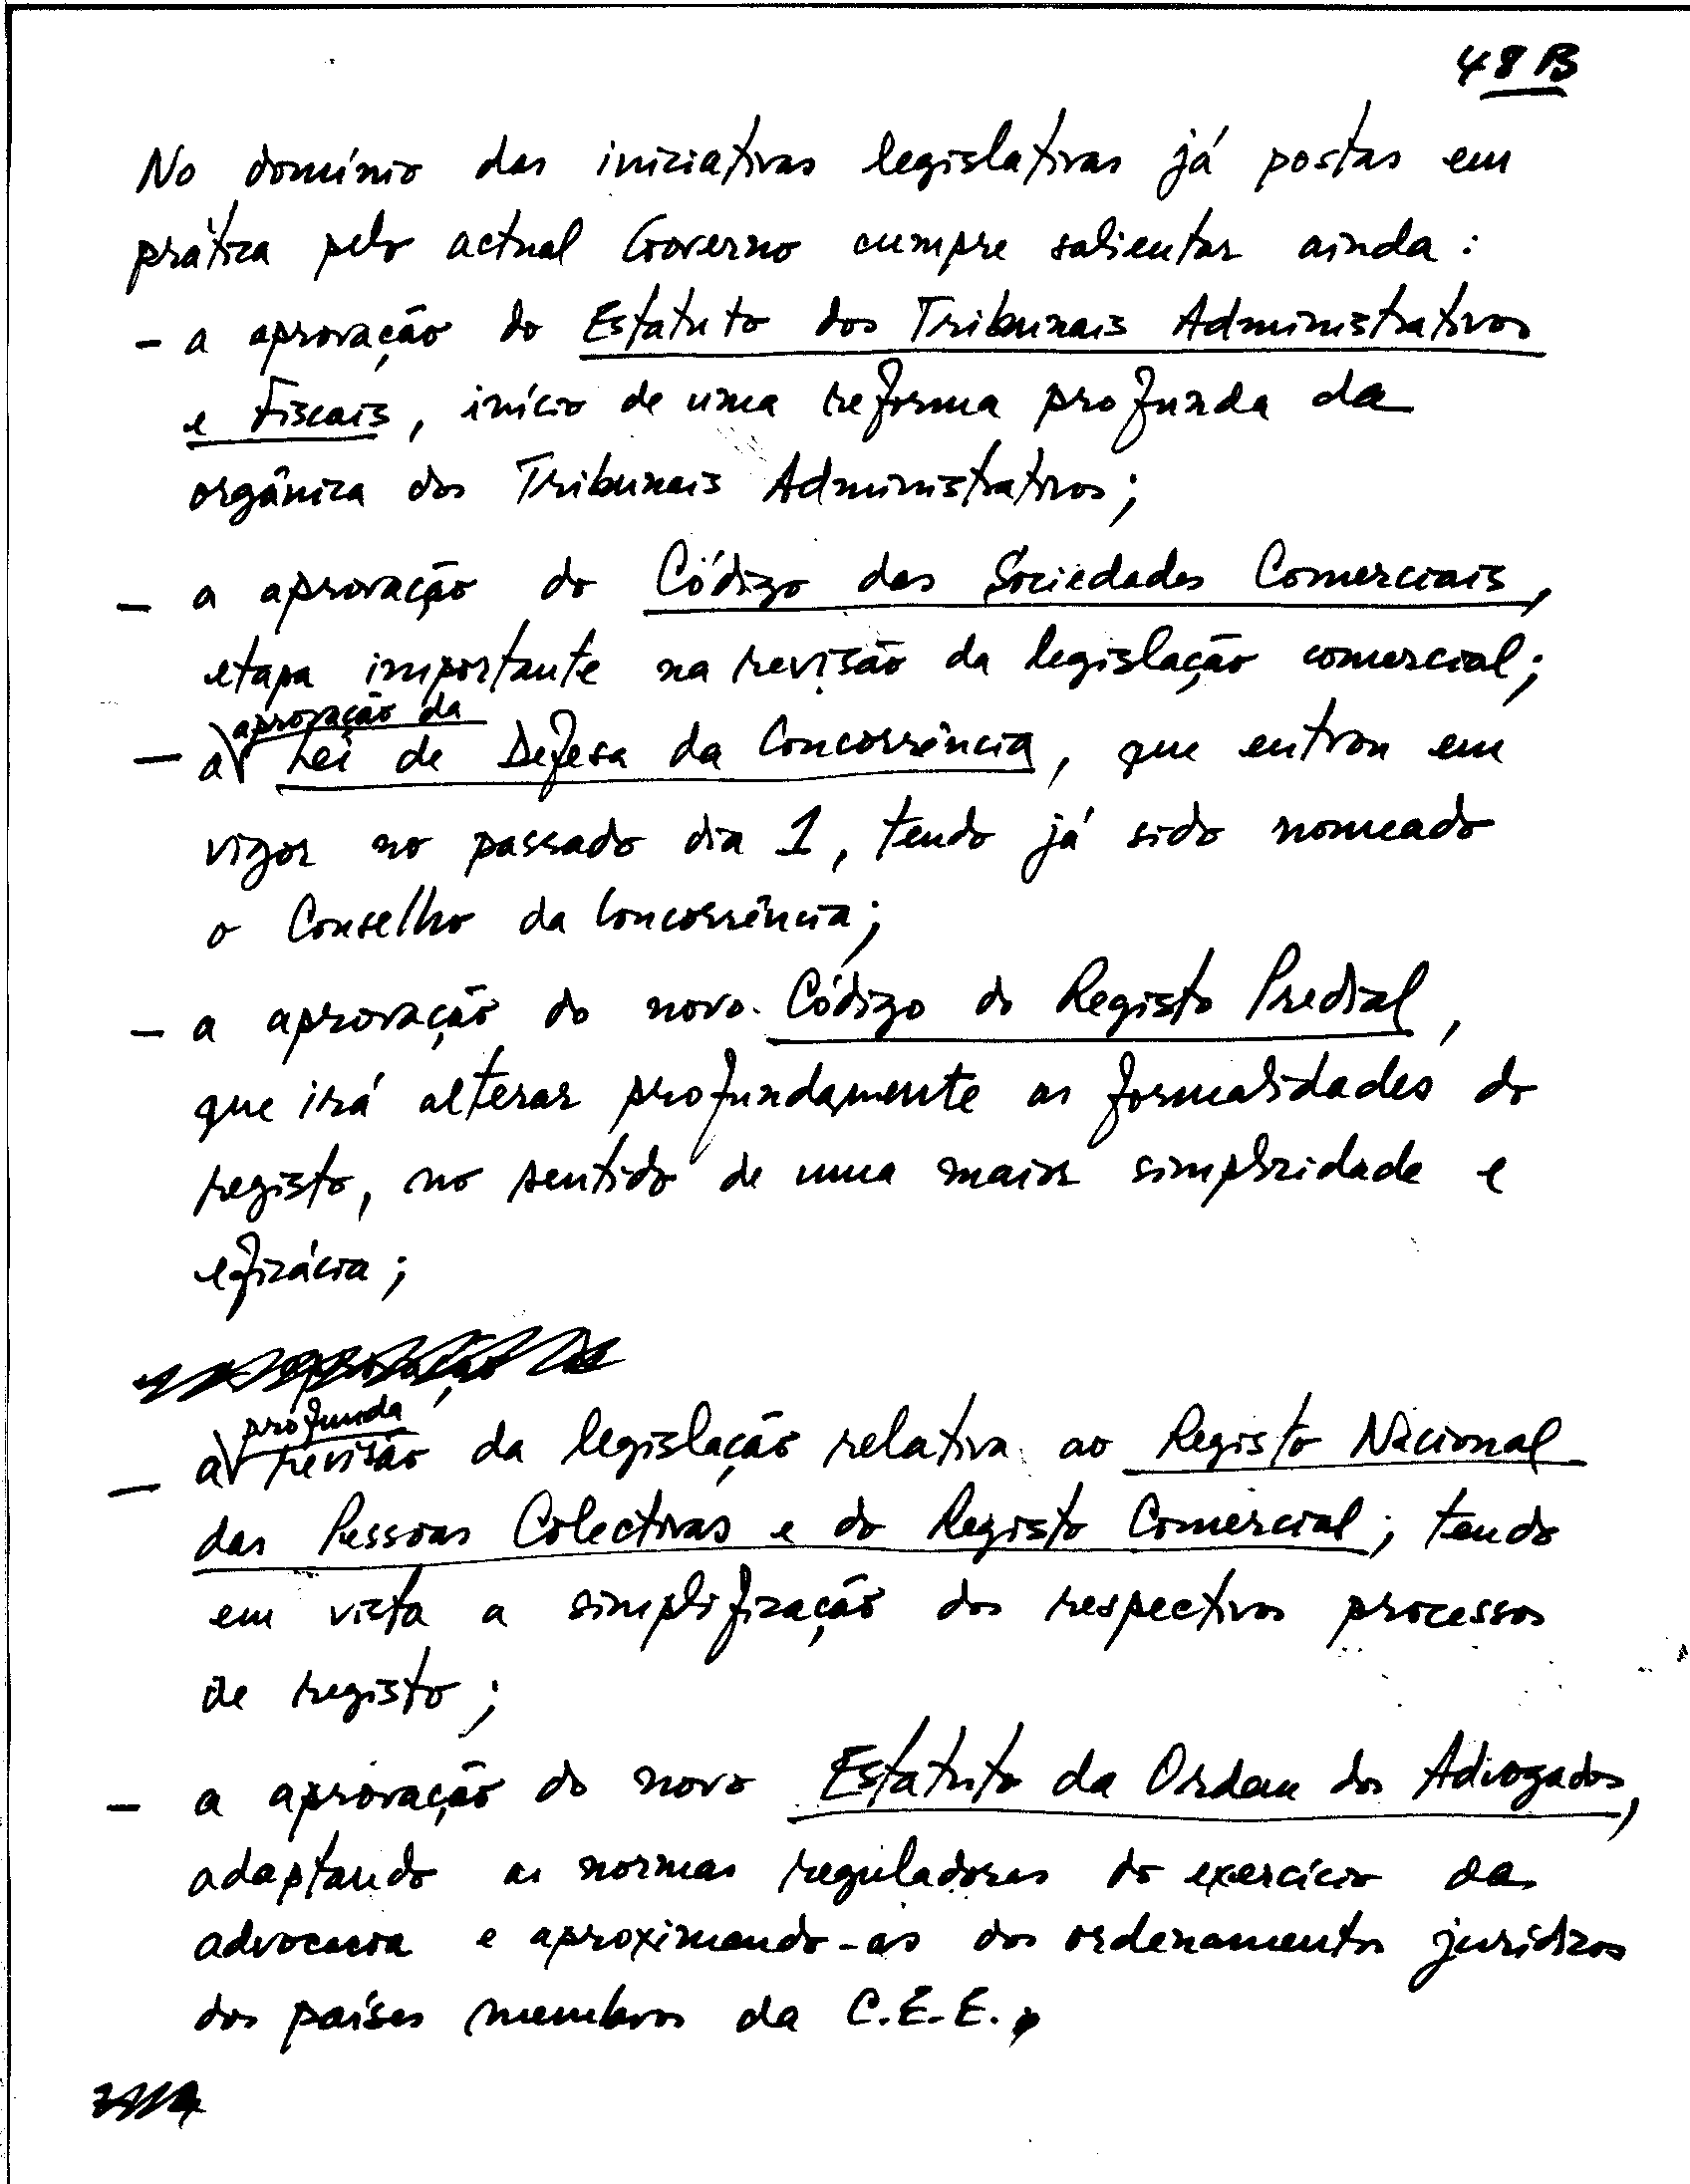 48 B
No domínio das iniciativas legislativas já postas em
prática pelo actual Governo cumpre salientar ainda:
- a aprovação do Estatuto dos Tribunais Administrativos
e Fiscais, início de uma reforma profunda da
orgânica dos Tribunais Administrativos;
- a aprovação do Código das Sociedades Comerciais,
etapa importante na revisão da legislação comercial;
aprovação da
- a Lei de Defesa da Concorrência, que entrou em
vigor no passado dia 1, tendo já sido nomeado
o Conselho da Concorrência;
- a aprovação do novo Código do Registo Predial,
que irá alterar profundamente as formalidades do
registo, no sentido de uma maior simplicidade e
eficácia;
profunda
- a revisão da legislação relativa ao Registo Nacional
das Pessoas Colectivas e do Registo Comercial; tendo
em vista a simplificação dos respectivos processos
de registo;
- a aprovação do novo Estatuto da Ordem dos Advogados,
adaptando as normas reguladoras do exercício da
advocacia e aproximando-as dos ordenamentos jurídicos
dos países membros da C.E.E.